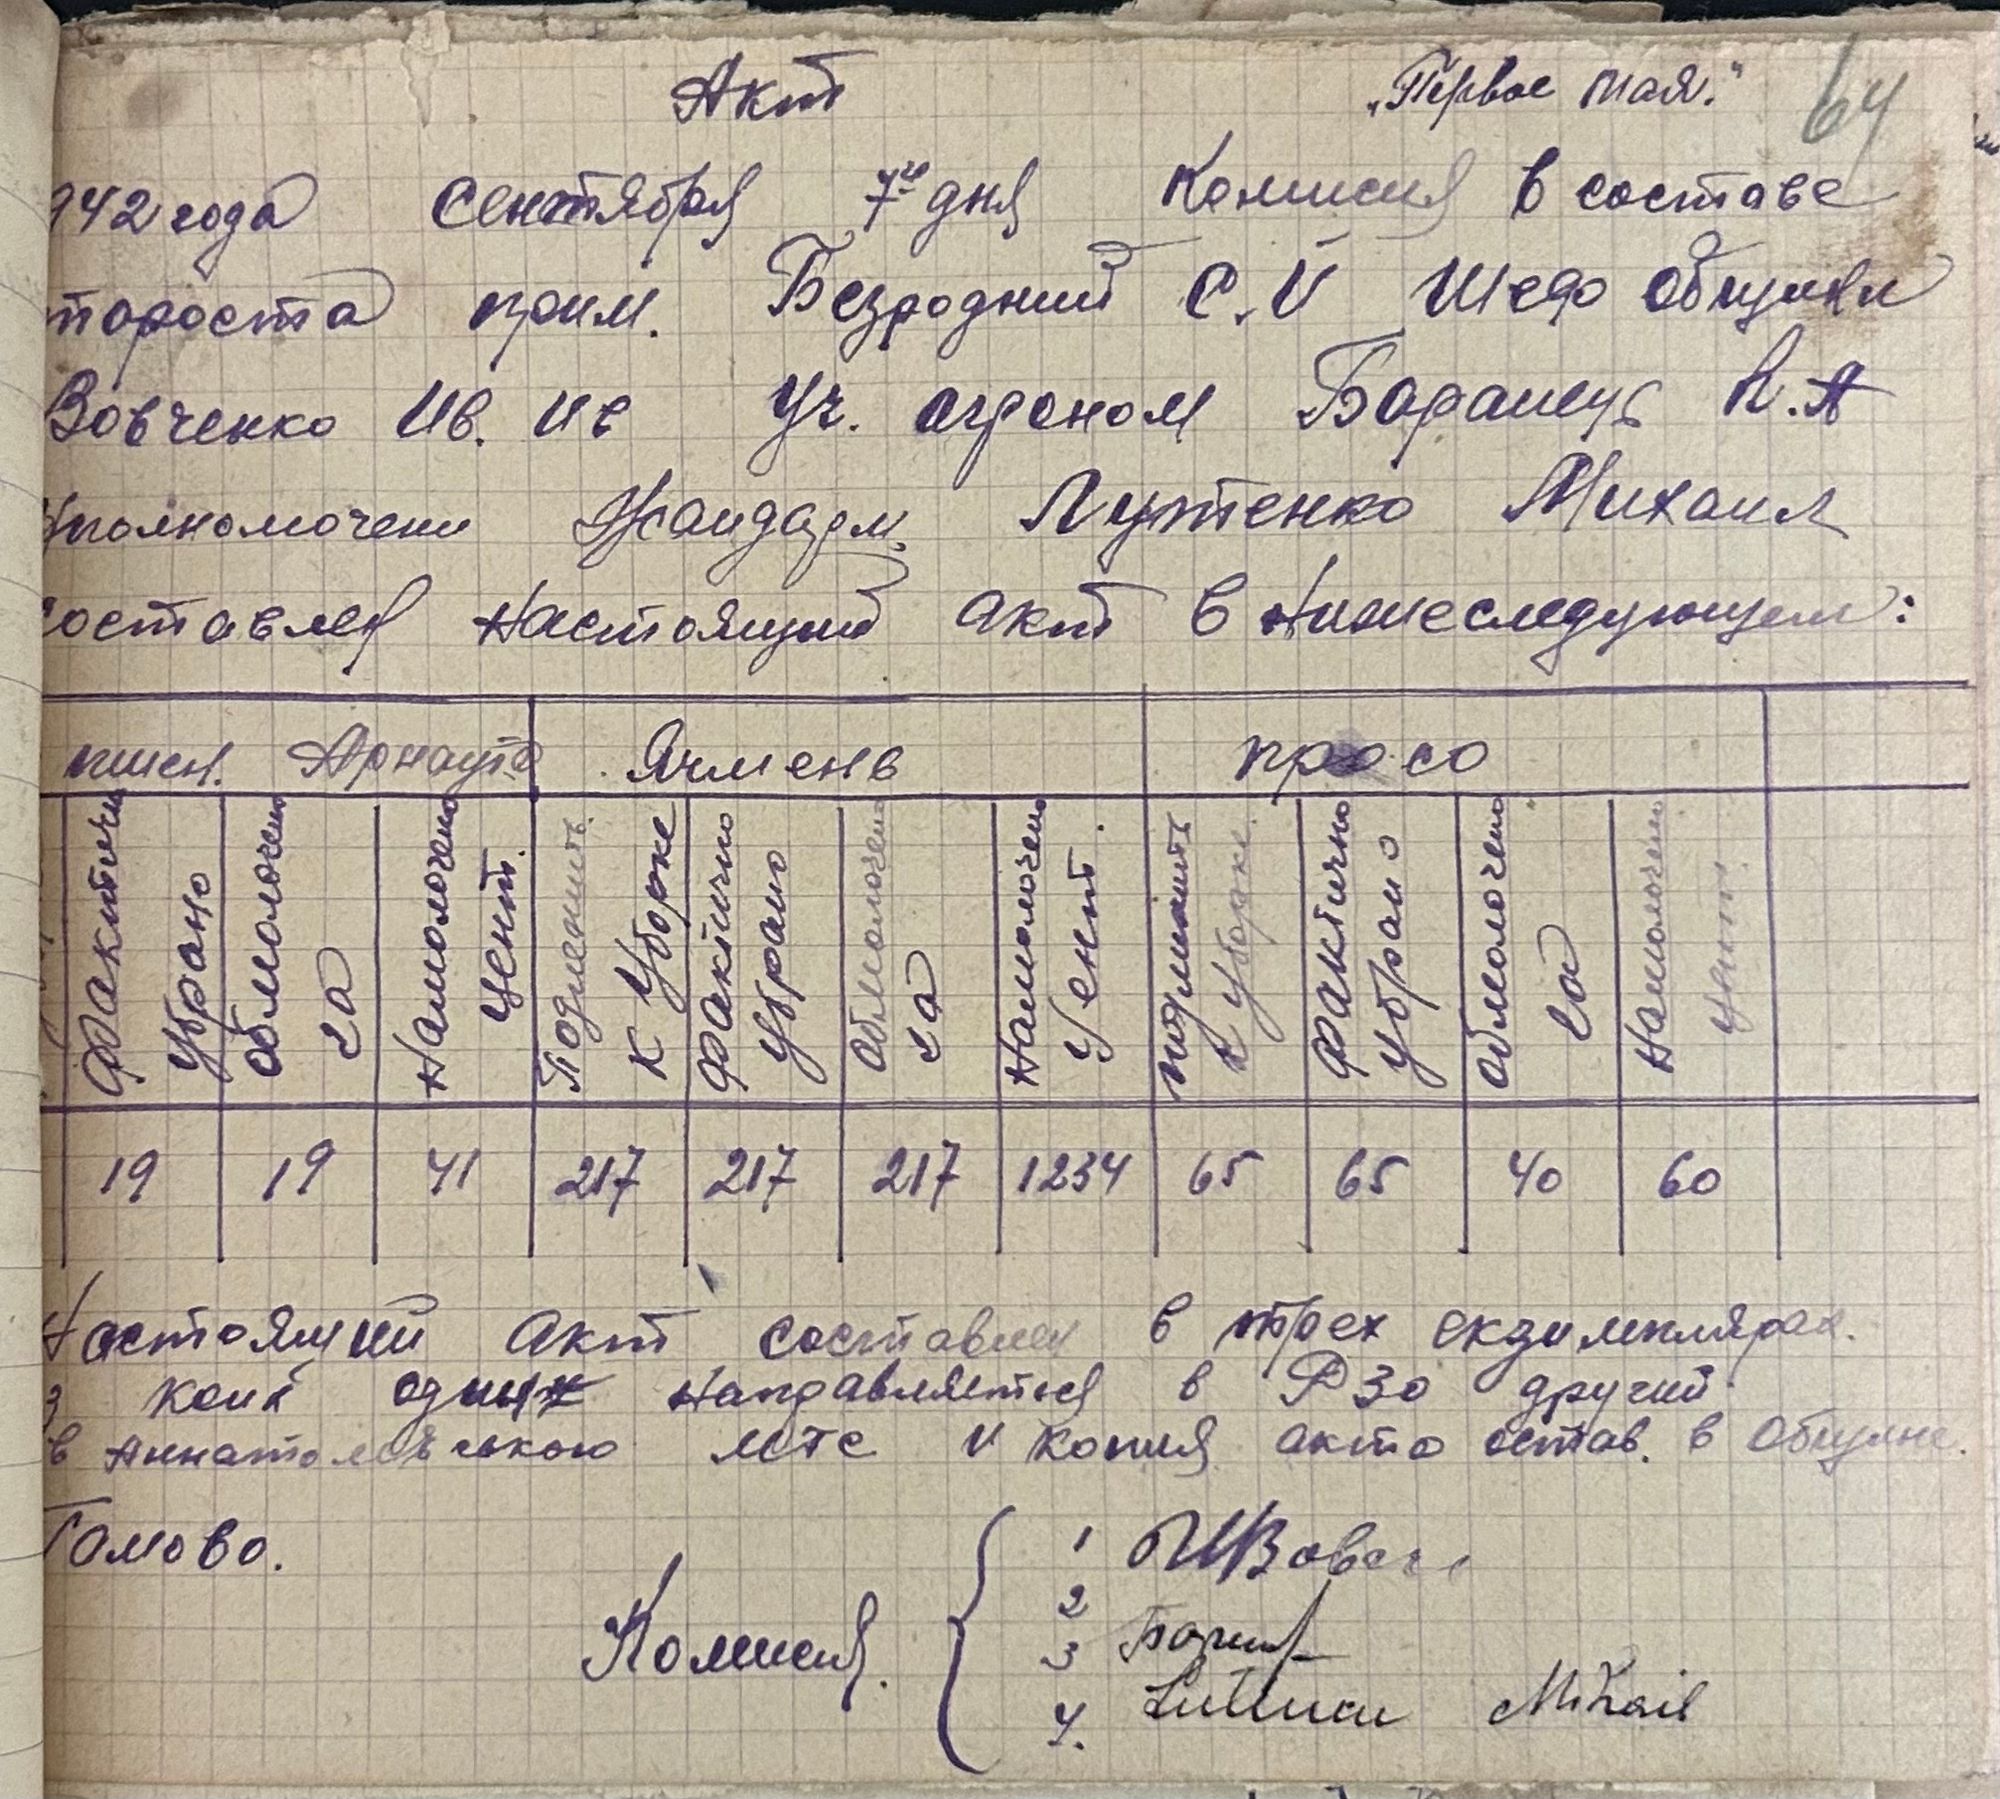 Акт „Первое мая." 64
942 года сентября 7го дня Комисия в составе
тароста прим. Безродний С.И Шефо общини
Вовченко Ив. Ив Уч. агроном А.А
уполномочени Жандарм. Лутенко Михаил
составлен настоящий акт в нижеследующем:
пшен. Арнаутка Ячмень просо
Фактичн убрано
обмолочено га
Намолочено цент.
Подлежить к уборке
Фактично убрано
Обмолочено га
Намолочено цент.
подлежить к уборке.
Фактично убрано
обмолочено га
Намолочено цент.
19 19 41 217 217 217 1234 65 65 40 60
Настоящий акт составлен в трех екземплярах.
з коих один направляеться в РЗО другий
в мтс и копия акта остав. в общине.
Гамово.
Комисия.
1
2
3
4. Mihail